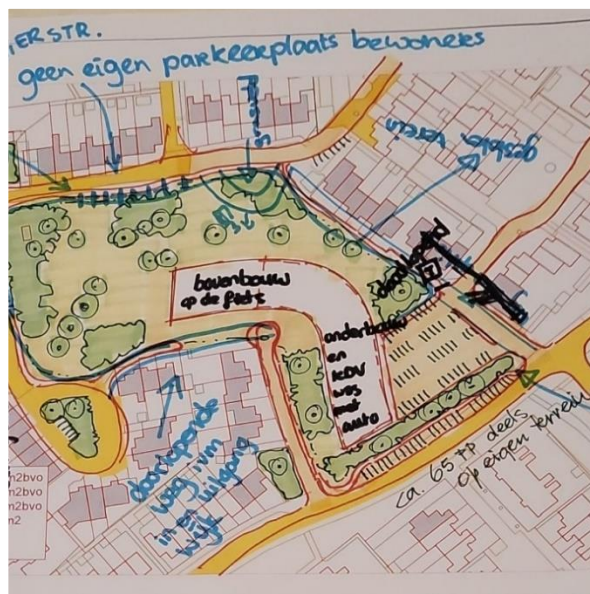 IERSTR.
geen eigen parkeerplaats bewoners
gesloten terein
bovenbouw
op de fiets
onderbouw
en
KDV
weg
met
auto
doorlopende
weg ivm
in en uitgang
wijk
ca. 65 pp deels
op eigen terrein
m2bvo
m2bvo
m2bvo
m2